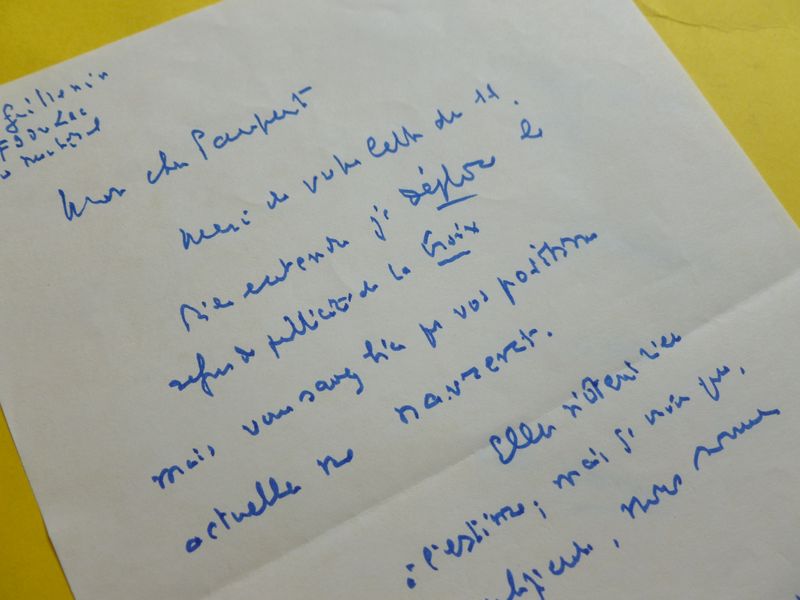 Guillemin
Mon cher Paupert
Merci de votre lettre du 11.
Bien entendu je déplore le
refus de publicité de la Croix
mais vous savez bien que vos positions
actuelles me navrent.
Elles n'ôtent rien
à l'estime; mais je vois que,
, nous sommes